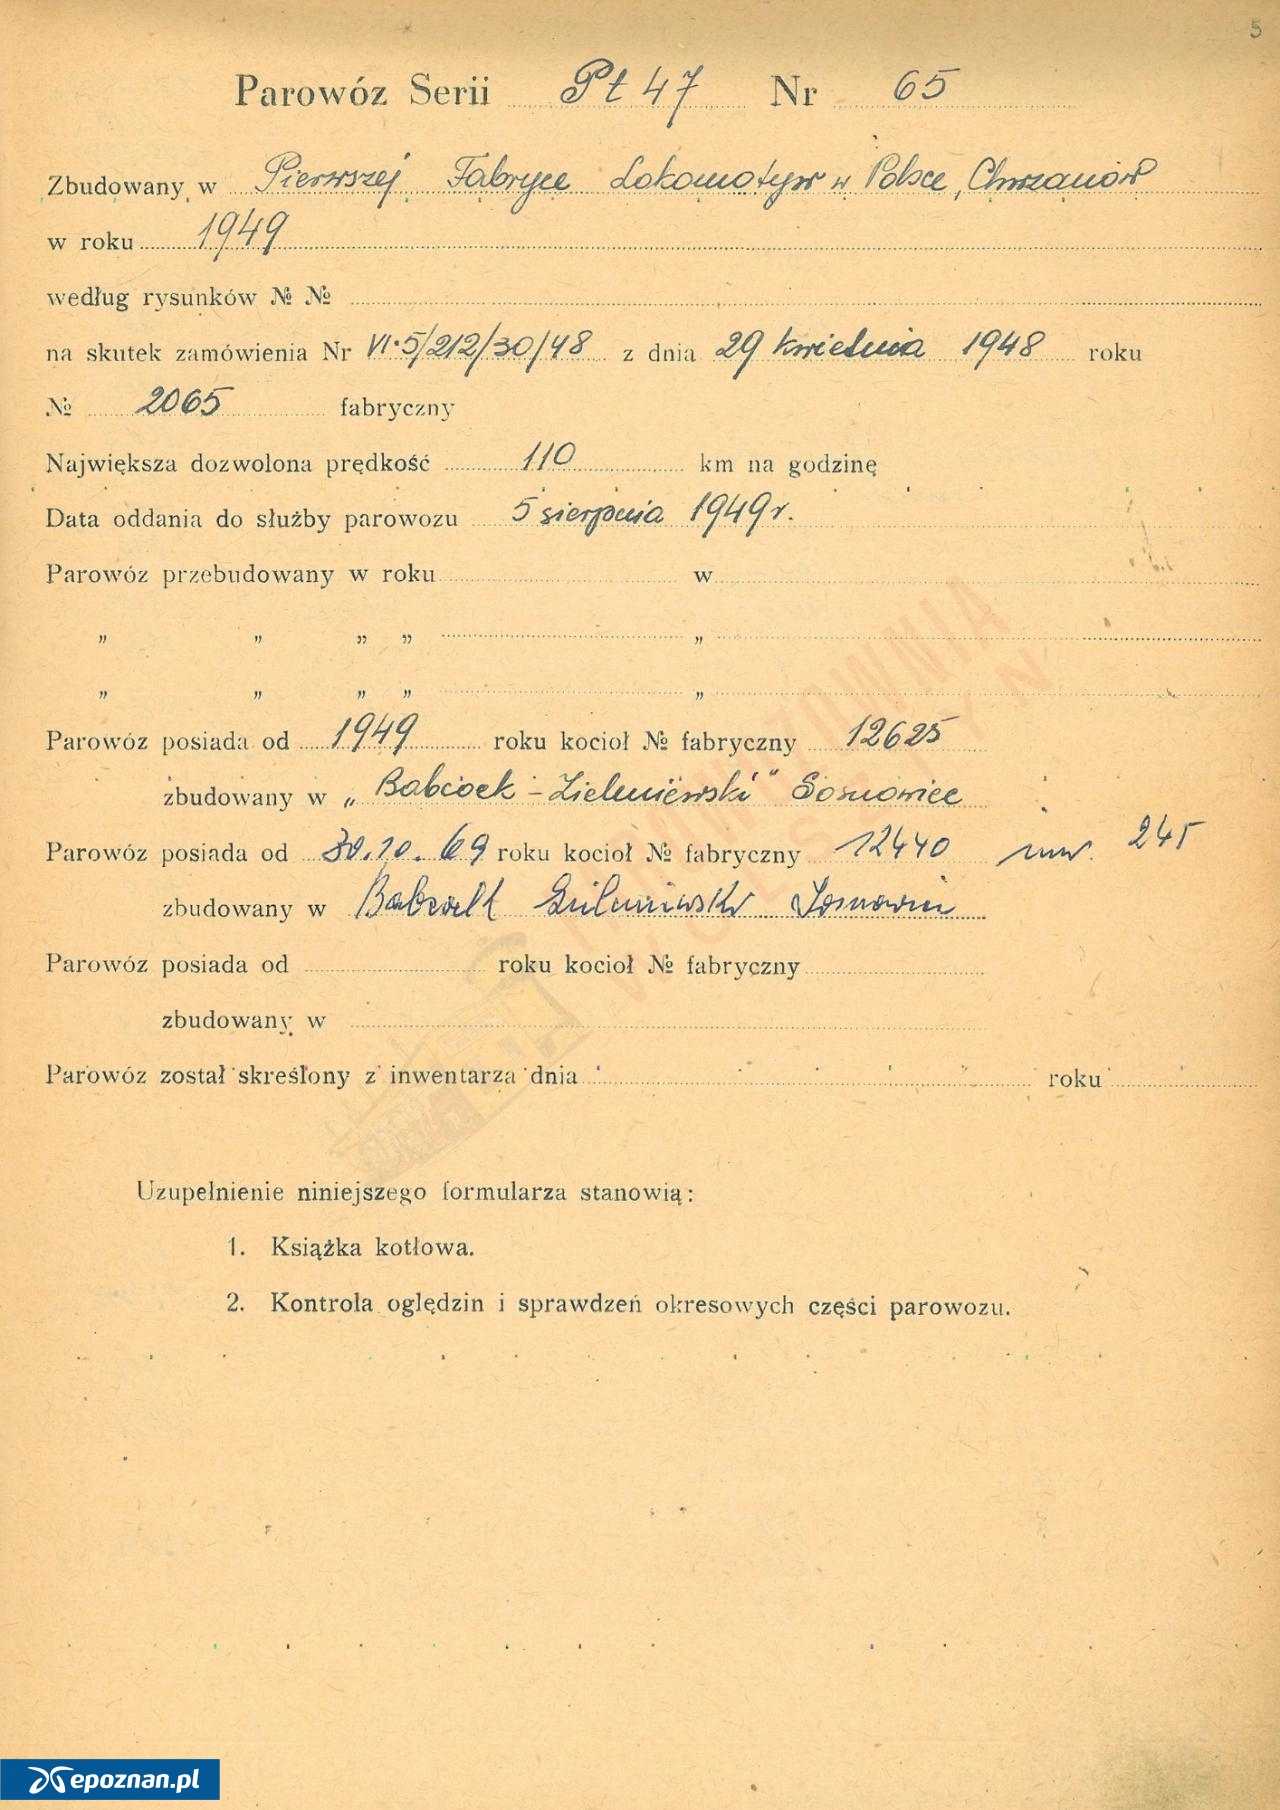 5
Parowóz Serii Pt 47 Nr 65
Zbudowany w Pierwszej Fabryce Lokomotyw w Polsce, Chrzanów
w roku 1949
według rysunków № №
na skutek zamówienia Nr VI·5/212/30/48 z dnia 29 kwietnia 1948 roku
№ 2065 fabryczny
Największa dozwolona prędkość 110 km na godzinę
Data oddania do służby parowozu 5 sierpnia 1949 r.
Parowóz przebudowany w roku w
„ „ „ „ „
„ „ „ „ „
Parowóz posiada od 1949 roku kocioł № fabryczny 12625
zbudowany w „Babcock-Zieleniewski" Sosnowiec
Parowóz posiada od 30.10.69 roku kocioł № fabryczny 12440 inw. 245
zbudowany w
Parowóz posiada od roku kocioł № fabryczny
zbudowany w
Parowóz został skreślony z inwentarza dnia roku
Uzupełnienie niniejszego formularza stanowią:
1. Książka kotłowa.
2. Kontrola oględzin i sprawdzeń okresowych części parowozu.
PAROWOZOWNIA
WOLSZTYN
epoznan.pl